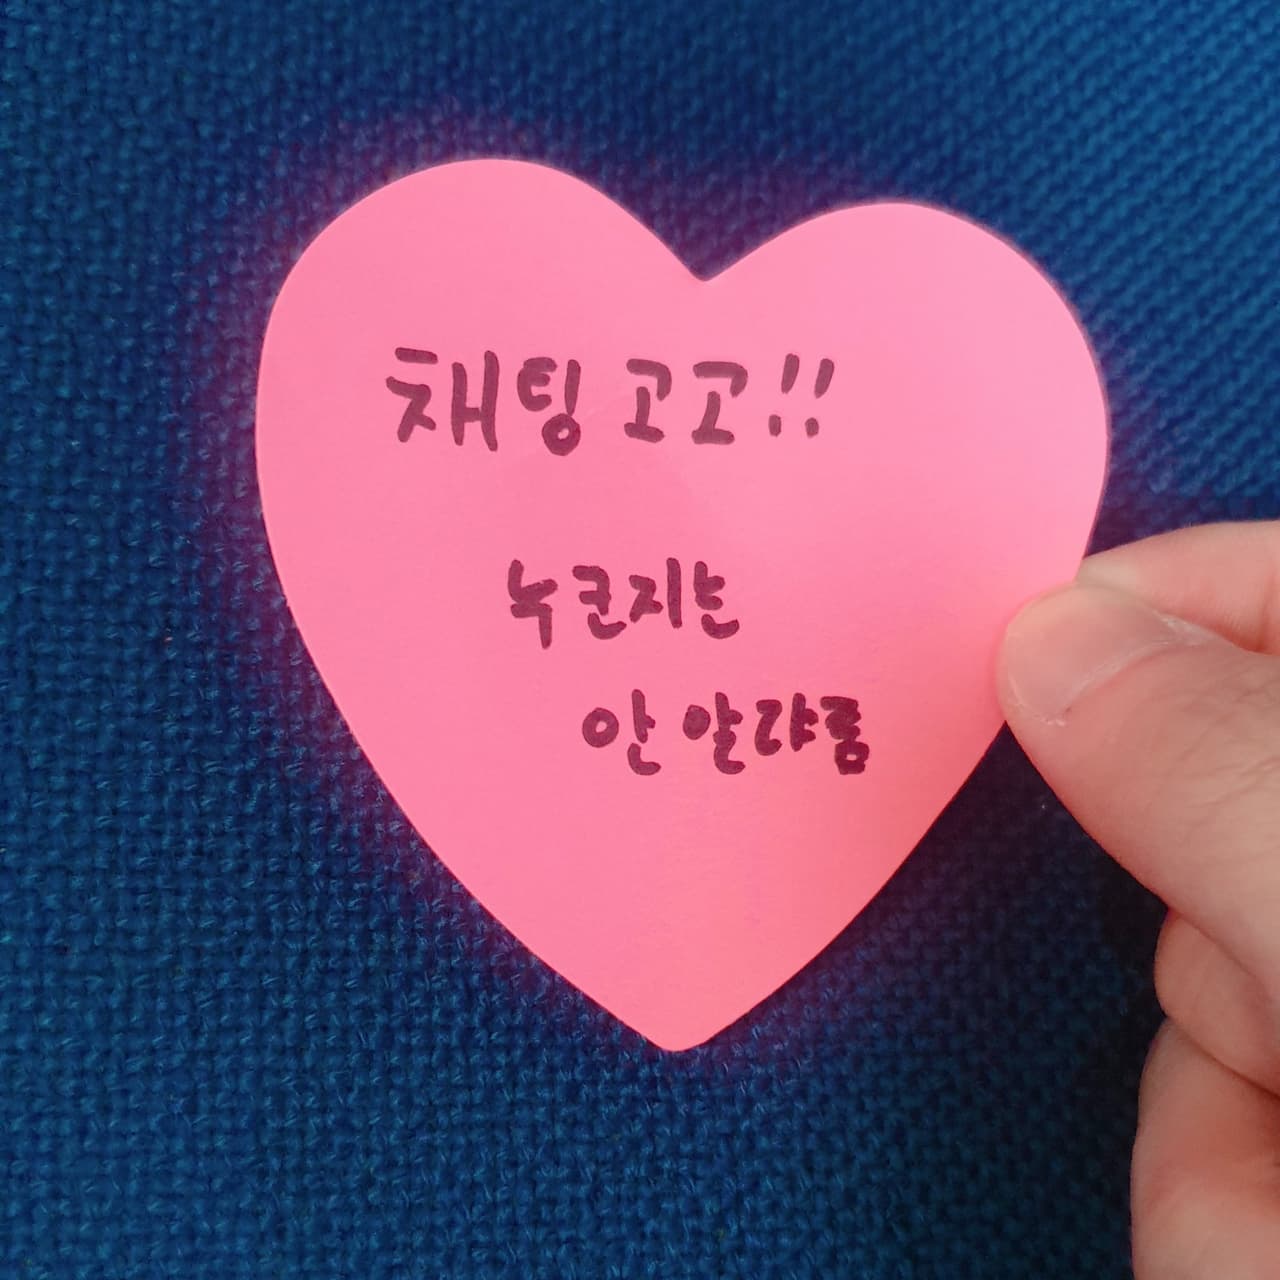 채팅 고고!!
누군지는
안 알랴륨